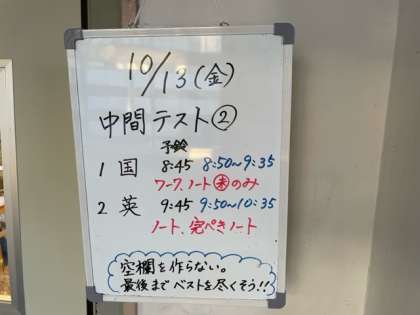 10/13(金)
中間テスト②
予鈴
1 国 8:45 8:50~9:35
ワーク、ノート㊍のみ
2 英 9:45 9:50~10:35
ノート、完ぺきノート
空欄を作らない。
最後までベストを尽くそう!!